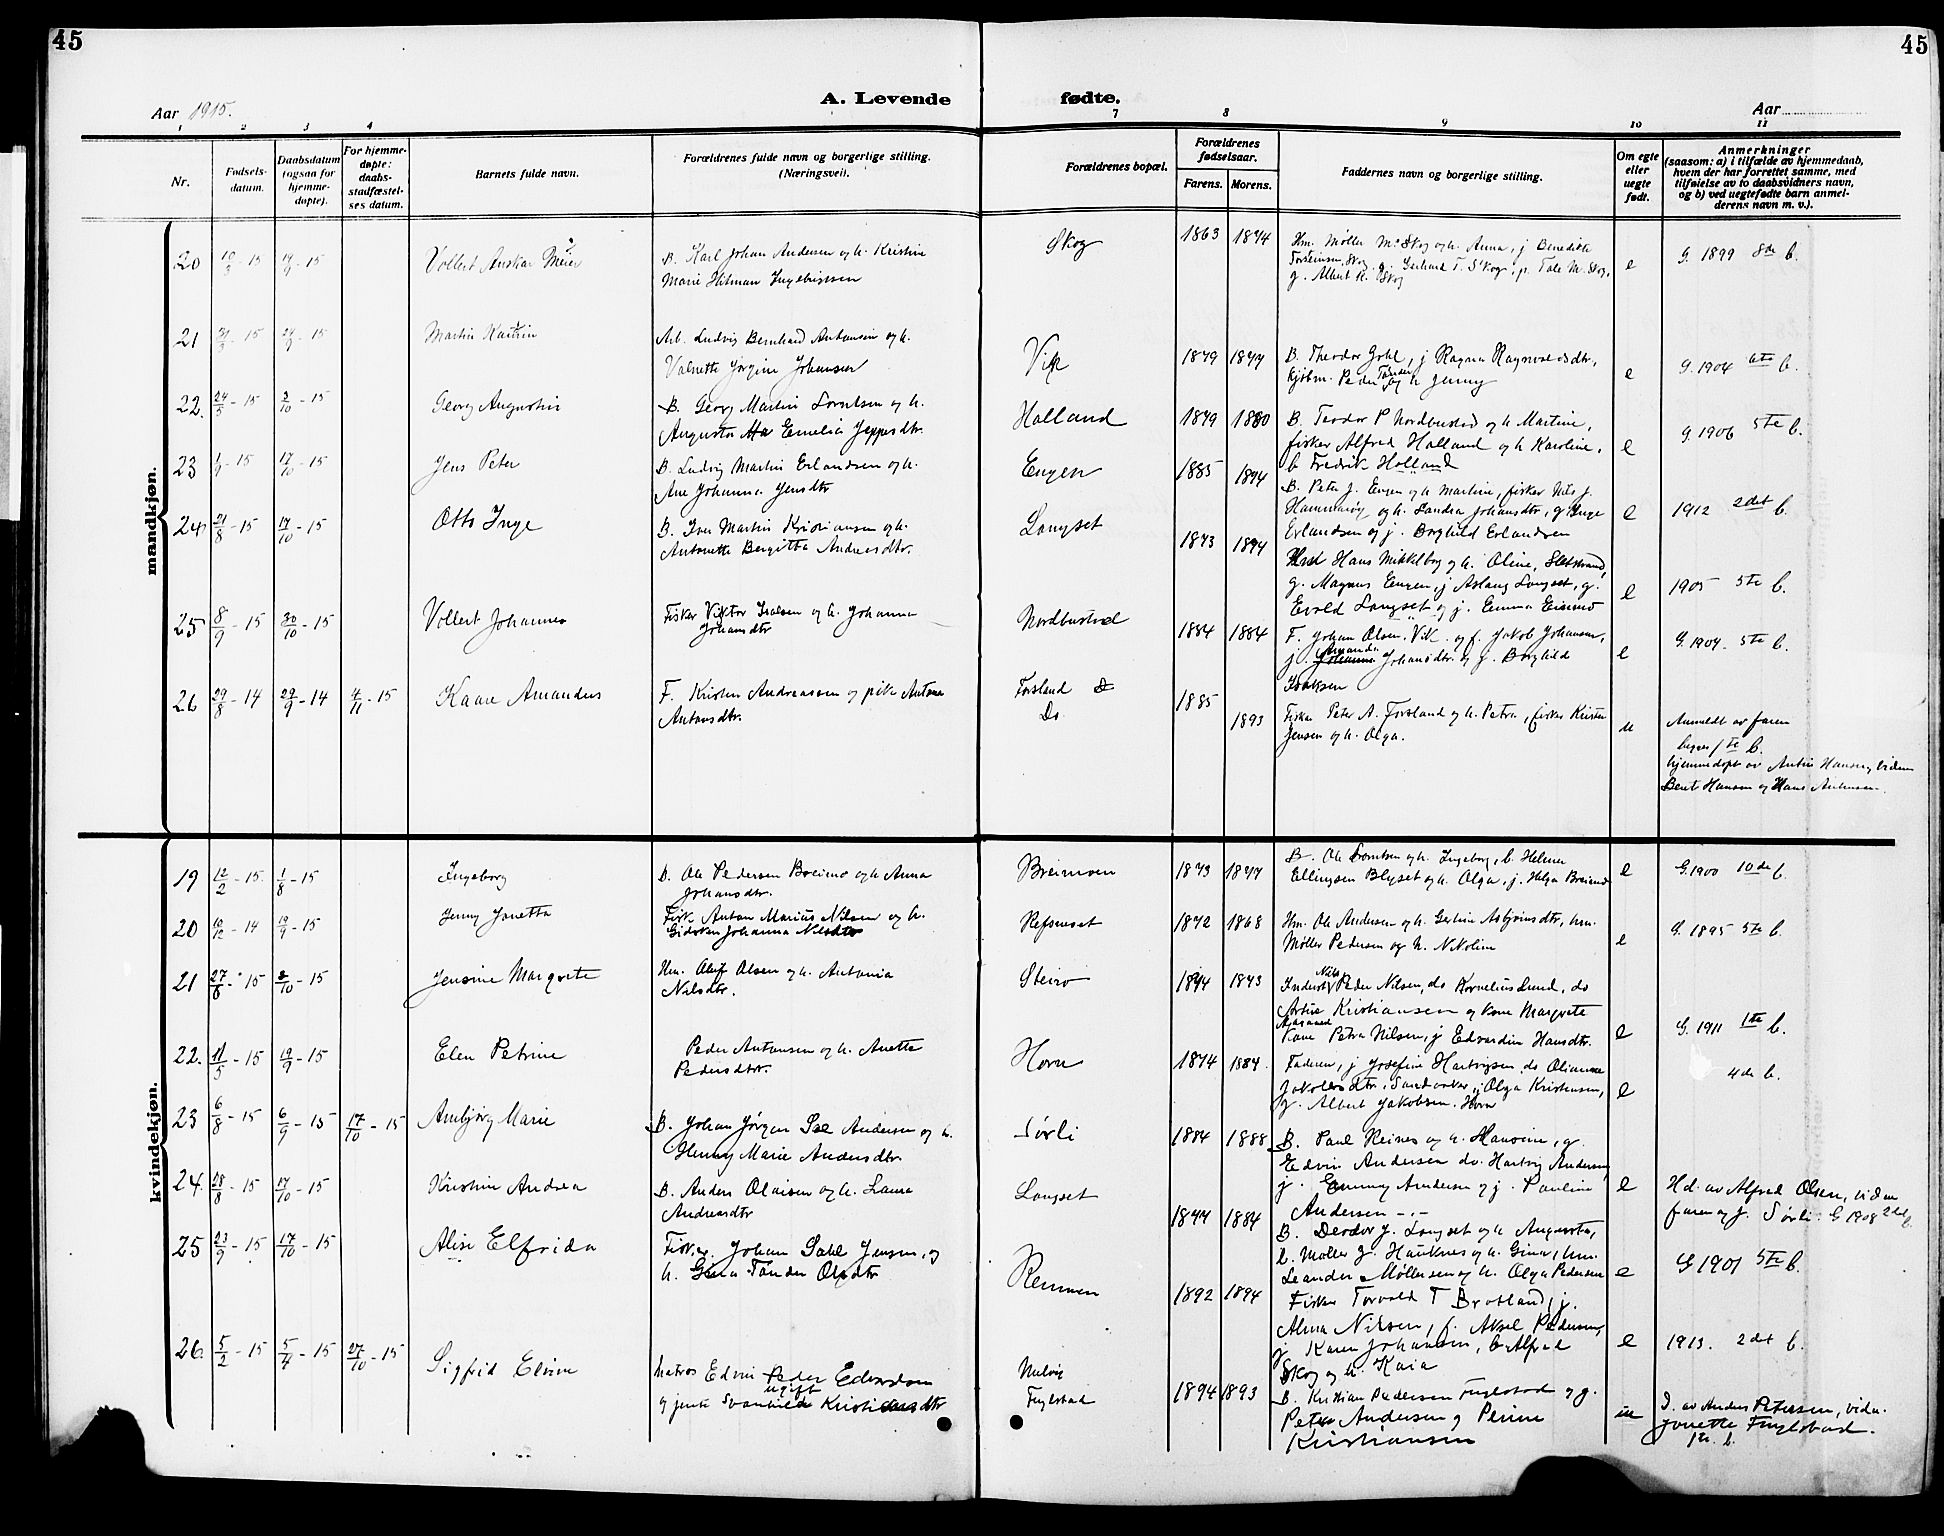 45
45
Aar 1915.
A. Levende
fødte.
Aar
1 2 3 4
7 8 9 10 11
Nr.
Fødsels-
datum.
Daabsdatum
(ogsaa for
hjemme-
døpte).
For hjemme-
døpte:
daabs-
stadfæstel-
ses datum.
Barnets fulde navn.
Forældrenes fulde navn og borgerlige stilling.
(Næringsvei).
Forældrenes bopæl.
Forældrenes
fødselsaar.
Farens. Morens.
Faddernes navn og borgerlige stilling.
Om egte
eller
uegte
født.
Anmerkninger
(saasom: a) i tilfælde av hjemmedaab,
hvem der har forrettet samme, med
tilføielse av to daabsvidners navn,
og b) ved uegtefødte barn anmel-
derens navn m. v.).
mandkjøn.
20 10/3 - 15 19/9 - 15 Vollert Anskar Meier
B. Karl Johan Andersen og h. Kristine
Marie Hitman Ingebrigtsen
Skog 1863 1874
Hm. Møller M. Skog og h. Anna, j Benedikte
g. Albert K. Skog
e G. 1899 8de b.
21 - 15 - 15 Martin
Arb. Ludvig Bernhard Antonsen og h.
Valnette Jørgine Johansen
Vik 1879 1877
B. Theodor Gohl, j Ragna Ragnvaldsdtr,
Kjøbm. Peder og h Jenny
e G. 1904 6te b.
22. 24/5 - 15 3/10 - 15 Georg Augustin
B. Georg Martin Lorntsen og h.
Augusta Emelia Jeppsdtr.
Holland 1879 1880
B. Teodor P Nordbustad og h Martine,
fisker Alfred Holland og h Karoline,
b Fredrik Holland
e G. 1906 5te b.
23 1/9 - 15 17/10 - 15 Jens Peter
B. Ludvig Martin Erlandsen og h.
Ane Johanna Jensdtr
Engen 1885 1894
B. Peter J. Engen og h Martine, fisker Nils J.
Hammarøy og h. Sandra Johansdtr, g. Inge
Erlandsen og j. Borghild Erlandsen
e 1912 2det b.
24. 21/8 - 15 17/10 - 15 Otto Inge
B. Iver Martin Kristiansen og h.
Antonette Bergitta Andreasdtr.
Langset 1873 1874
Hans Mikkelborg og h. Oline, Sletstrand,
g. Magnus Engen, j Aslaug Langset, g.
Evald Langset og j. Emma Eismo
e 1905 5te b.
25 8/9 - 15 30/10 - 15 Vollert Johannes
Fisker Viktor Isaksen og h. Johanna
Johansdtr
Nordbustad 1884 1884
F. Johan Olsen, Vik. og f. Jakob Johansen,
j. Amanda Johansdtr. og j. Borghild
Isaksen
e G. 1907. 5te b.
26 29/8 - 14 29/9 - 14 7/11 - 15 Kaare Amandus
F. Kristen Andreassen og pike Antone
Antonsdtr.
Forsland
Do. 1885
1893
Fisker Peter A. Forsland og h. Petra, fisker Kristen
Jensen og h. Olga.
u Anmeldt av faren
begges 1te b.
hjemmedøpt av Antin Hansen, vidner
Berit Hansen og Hans Antonsen.
kvindekjøn.
19 12/2 - 15. 1/8 - 15 Ingeborg
B. Ole Pedersen Breimo og h Anna
Johansdtr.
Breimoen 1873 1877
B. Ole Lorntsen og h. Ingeborg, b. Helmer
Ellingsen Blyset og h. Olga, j. Helga Breimo
e G. 1900 10de b.
20 10/12 - 14 19/9 - 15 Jenny Jonetta
Fisk. Anton Marius Nilsen og h.
Johanna Nilsdtr
Refsenset 1872 1868
Hm. Ole Andersen og h. Gertine Asbjørnsdtr, hm.
Møller Pedersen og h. Nikoline
e G. 1895 5te b.
21 27/6 - 15 3/10 - 15 Jensine Margrete
Hm. Oluf Olsen og h. Antonia
Nilsdtr.
Steiro 1874 1873
Inderst Nils Peder Nilsen, do Kornelius Lund, do
Artur Kristiansen og kone Margrete
Kone Petra Nilsen, j Edvardine Hansdtr.
e G. 1911 1te b.
22. 11/5 - 15 19/9 - 15 Elen Petrine
Peder Antonsen og h. Anette
Pedersdtr.
Horn 1874 1884.
Faderen, j Josefine Hartvigsen, do Olianna
Jakobsdtr. Sandvaker, j Olga Kristensen,
g. Albert Jakobsen. Horn
e 4de b.
23 6/8 - 15 6/9 - 15 17/10 - 15 Arnbjørg Marie
B. Johan Jørgen Andersen og h.
Henny Marie Andersdtr.
Sørli 1884 1888
B. Paul Reines og h. Hansine, g.
Edvin Andersen do. Hartvig Andersen,
j. Emmy Andersen og j. Pauline
Andersen -.-
e Hd. av Alfred Olsen, vidne
faren og J. Sørli. G 1908 2det b.
24. 28/8 - 15 17/10 - 15 Kristine Andrea
B. Anders Olaisen og h. Laura
Andreasdtr
Langset 1877 1884
B. Deodor J. Langset og h Augusta,
b. Møller J. Hauknes og h. Gina, hm.
Leander Møllersen og h. Olga Pedersen
e G 1901 5te b.
25 23/9 - 15 17/10 - 15 Alise Elfrida
Fisker. Johan Jensen, og
h. Gina Tander Olsdtr
Remmen 1892 1894
Fisker Torvald T Brotland, j.
Alma Nilsen, f. Aksel Pedersen,
j Karen Johansen, b Alfred
Skog og h. Kaia
e 1913. 2det b.
26. 5/2 - 15 5/4 - 15 27/10 - 15 Sigfrid Elvine
Matros Edvin Peder Edvardsen
og jente ugift Svanhilde Kristiansdtr
Fuglstad 1894 1893
B. Kristian Pedersen Fuglstad og g.
Peter Andersen og Perine
Kristiansen
u D. av Anders Petersen, vidn.
Jonette Fuglstad.
1te b.